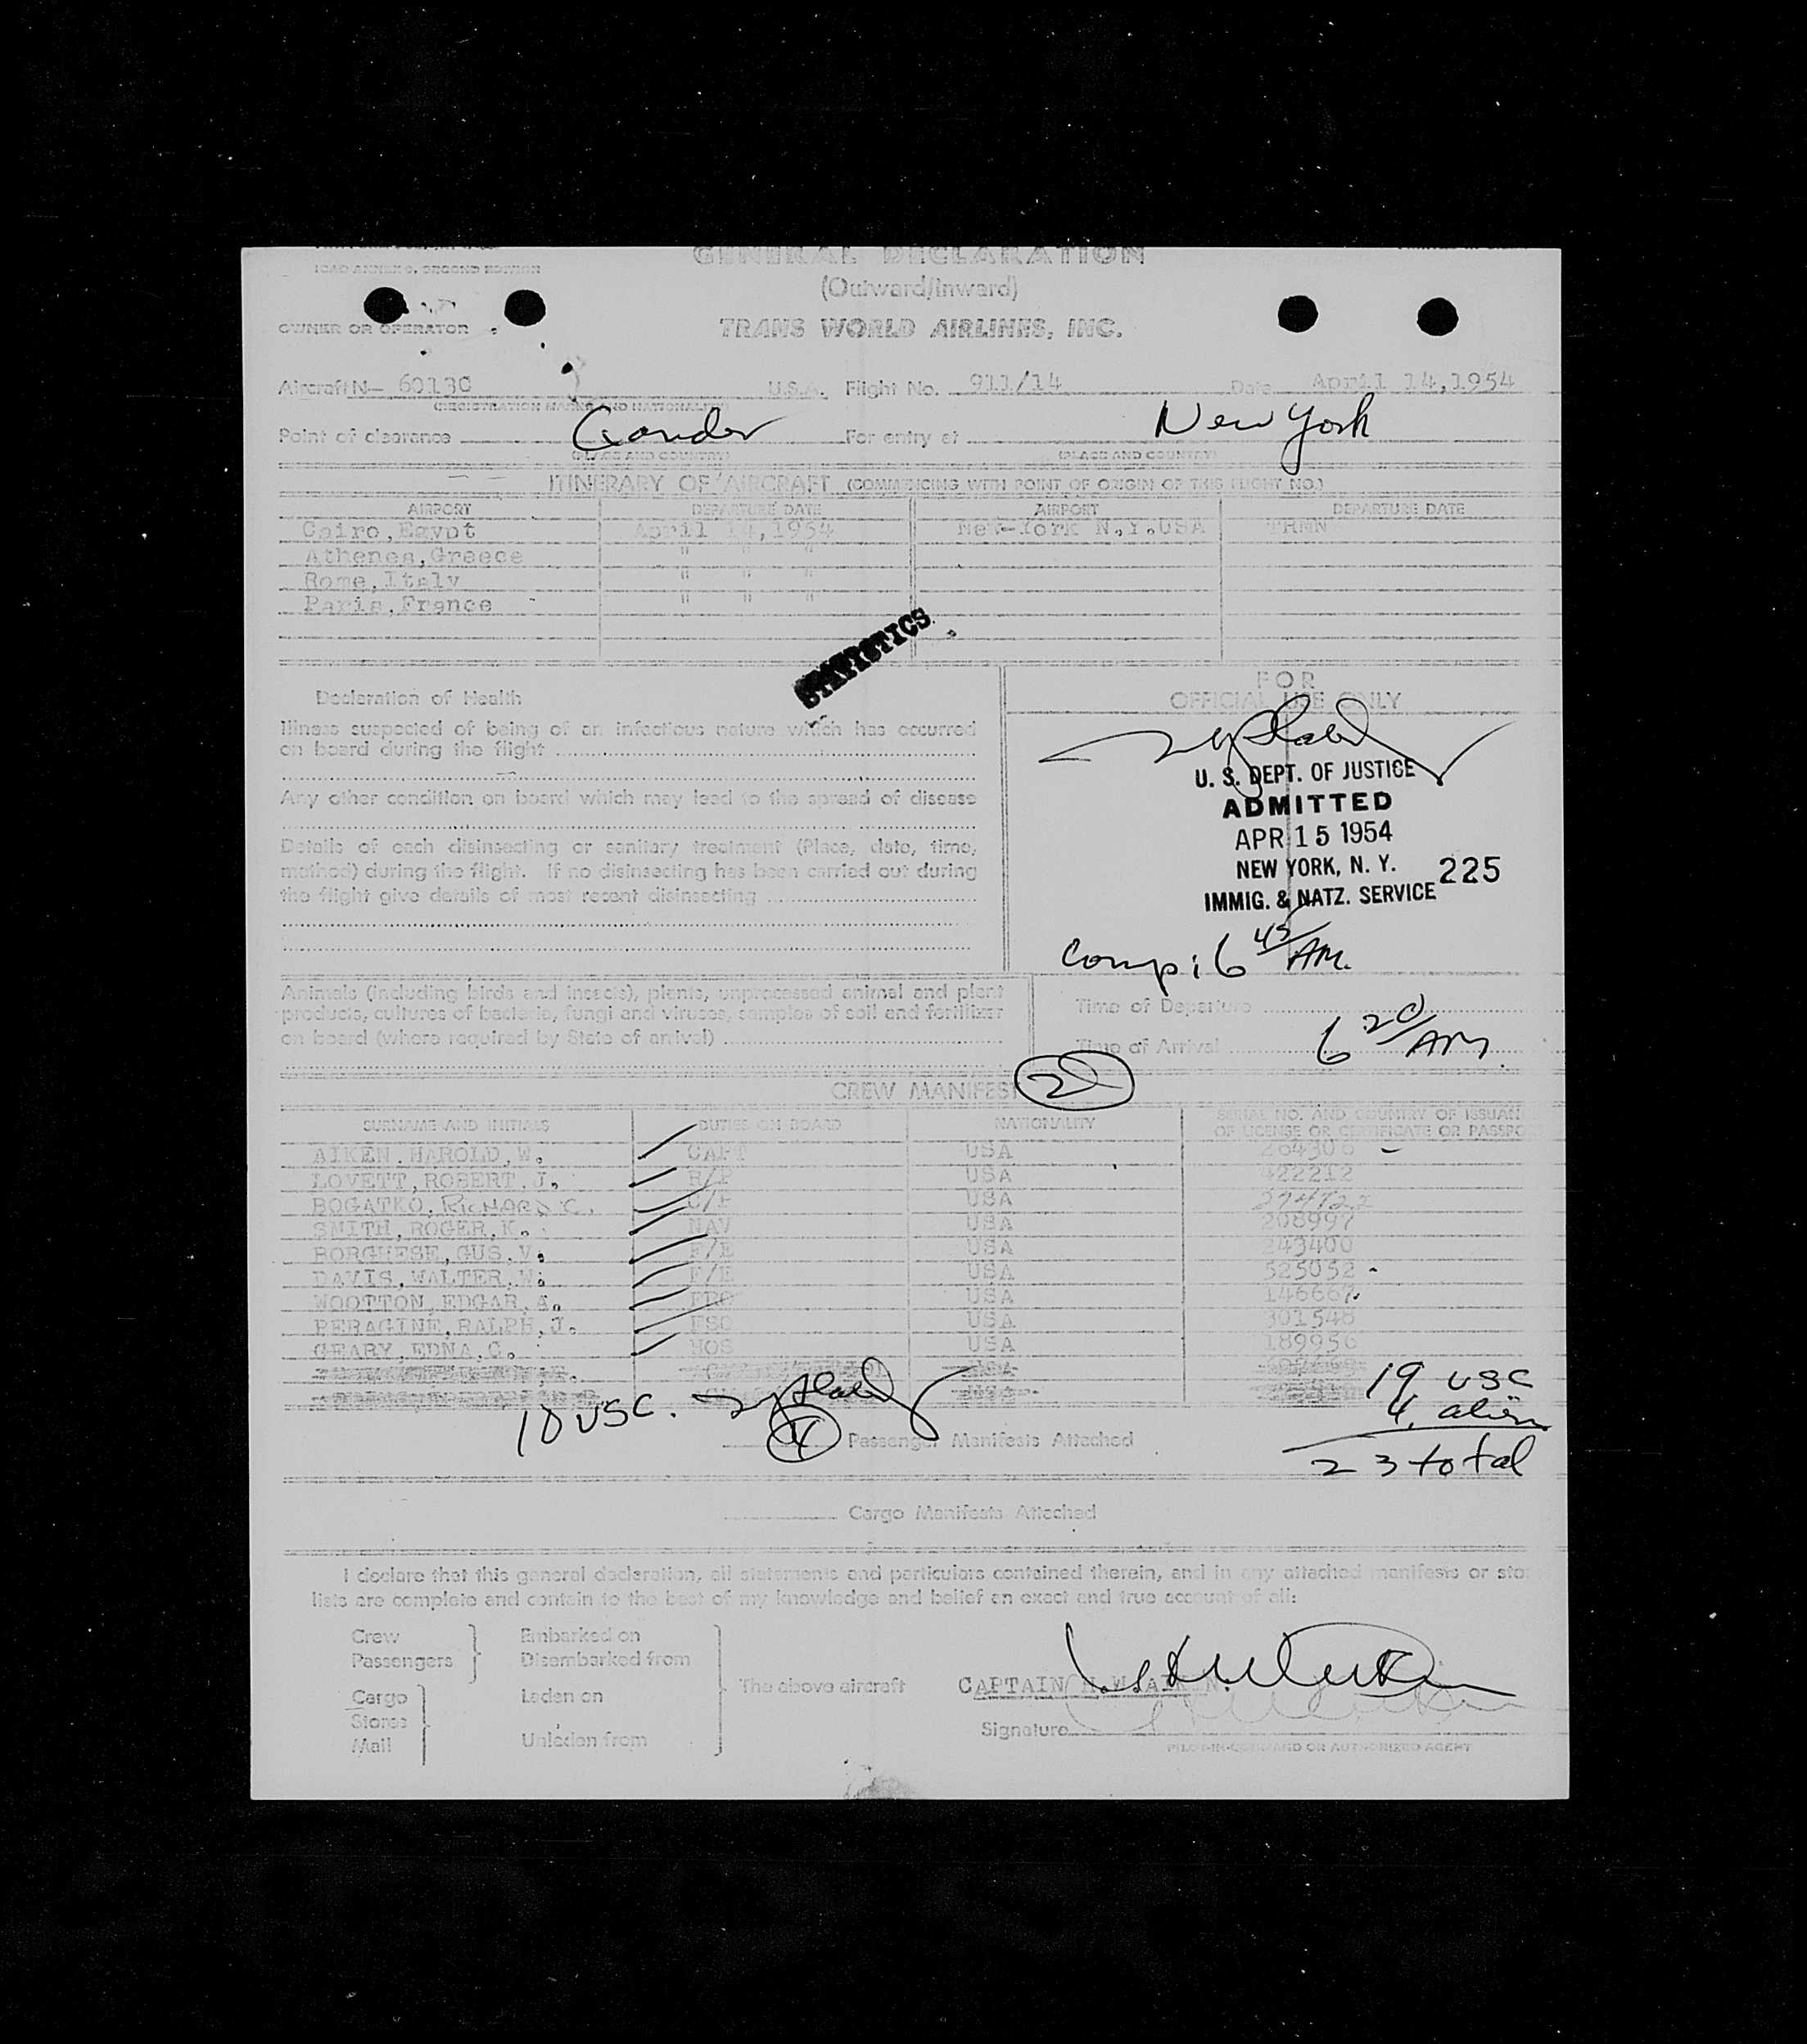 ICAO ANNEX 9, SECOND EDITION
GENERAL DECLARATION
(Outward/Inward)
OWNER OR OPERATOR
TRANS WORLD AIRLINES, INC.
Aircraft N— 60130 U.S.A. Flight No. 911/14 Date April 14,1954
(REGISTRATION MARKS AND NATIONALITY)
Point of clearance Gander For entry at New York
(PLACE AND COUNTRY) (PLACE AND COUNTRY)
ITINERARY OF AIRCRAFT (COMMENCING WITH POINT OF ORIGIN OF THIS FLIGHT NO.)
AIRPORT DEPARTURE DATE AIRPORT DEPARTURE DATE
Cairo,Egypt April 14,1954 New-York N.Y.USA TRMN
Athenes,Greece " " "
Rome,Italy " " "
Paris,France " " "
STATISTICS
Declaration of Health
Illness suspected of being of an infectious nature which has occurred
on board during the flight
Any other condition on board which may lead to the spread of disease
Details of each disinsecting or sanitary treatment (Place, date, time,
method) during the flight. If no disinsecting has been carried out during
the flight give details of most recent disinsecting
FOR
OFFICIAL USE ONLY
U. S. DEPT. OF JUSTICE
ADMITTED
APR 15 1954
NEW YORK, N. Y. 225
IMMIG. & NATZ. SERVICE
Comp: 6 45/AM.
Animals (including birds and insects), plants, unprocessed animal and plant
products, cultures of bacteria, fungi and viruses, samples of soil and fertilizer
on board (where required by State of arrival)
Time of Departure
Time of Arrival 6 20/AM.
CREW MANIFEST
SURNAME AND INITIALS DUTIES ON BOARD NATIONALITY SERIAL NO. AND COUNTRY OF ISSUAN
OF LICENSE OR CERTIFICATE OR PASSPO
AIKEN,HAROLD,W. CAPT USA 264306
LOVETT,ROBERT,J. USA 422212
BOGATKO,RICHARD C. USA
SMITH,ROGER,K. NAV USA 208997
BORGHESE,GUS,V. F/E USA 243400
DAVIS,WALTER,W. F/E USA 525052
WOOTTON,EDGAR,A. USA 146667
PERAGINE,RALPH,J. USA 301548
GEARY,EDNA,C. HOS USA 189956
10 USC.
19 USC
4 alien
23 total
4 Passenger Manifests Attached
Cargo Manifests Attached
I declare that this general declaration, all statements and particulars contained therein, and in any attached manifests or sto
lists are complete and contain to the best of my knowledge and belief an exact and true account of all:
Crew Embarked on
Passengers Disembarked from
The above aircraft
Cargo Laden on
Stores
Mail Unladen from
CAPTAIN H.W.AIKEN.
Signature
PILOT-IN-COMMAND OR AUTHORIZED AGENT